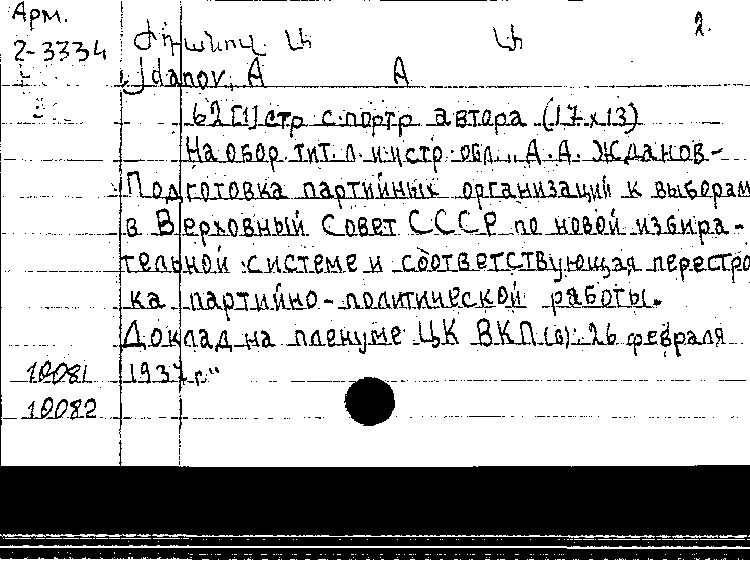 Арм. 2.
2-3334 Ժդանով Ա Ա
Jdanov, A A
62[1] стр с портр автора (17x13)
На обор. тит. л. и истр. обл. „А.А. Жданов-
Подготовка партийных организаций к выборам
в Верховный Совет СССР по новой избира-
тельной системе и соответствующая перестро
ка партийно-политической работы.
Доклад на пленуме ЦК ВКП(б). 26 февраля
10081 1937 г."
10082